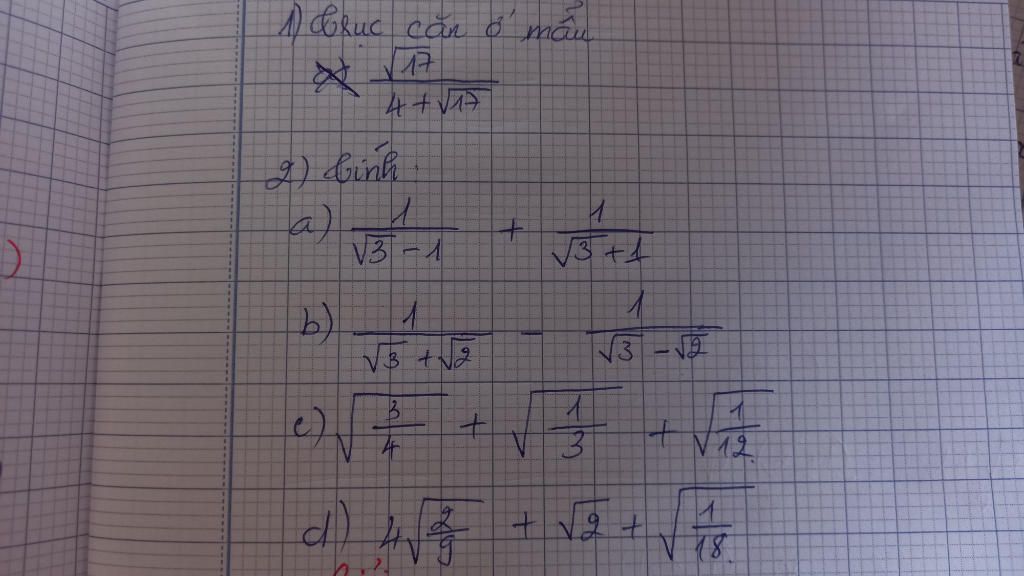 1) Trục căn ở mẫu
√17 / (4 + √17)
2) Tính
a) 1/(√3 - 1) + 1/(√3 + 1)
b) 1/(√3 + √2) - 1/(√3 - √2)
c) √(3/4) + √(1/3) + √(1/12)
d) 4√(2/9) + √2 + √(1/18)